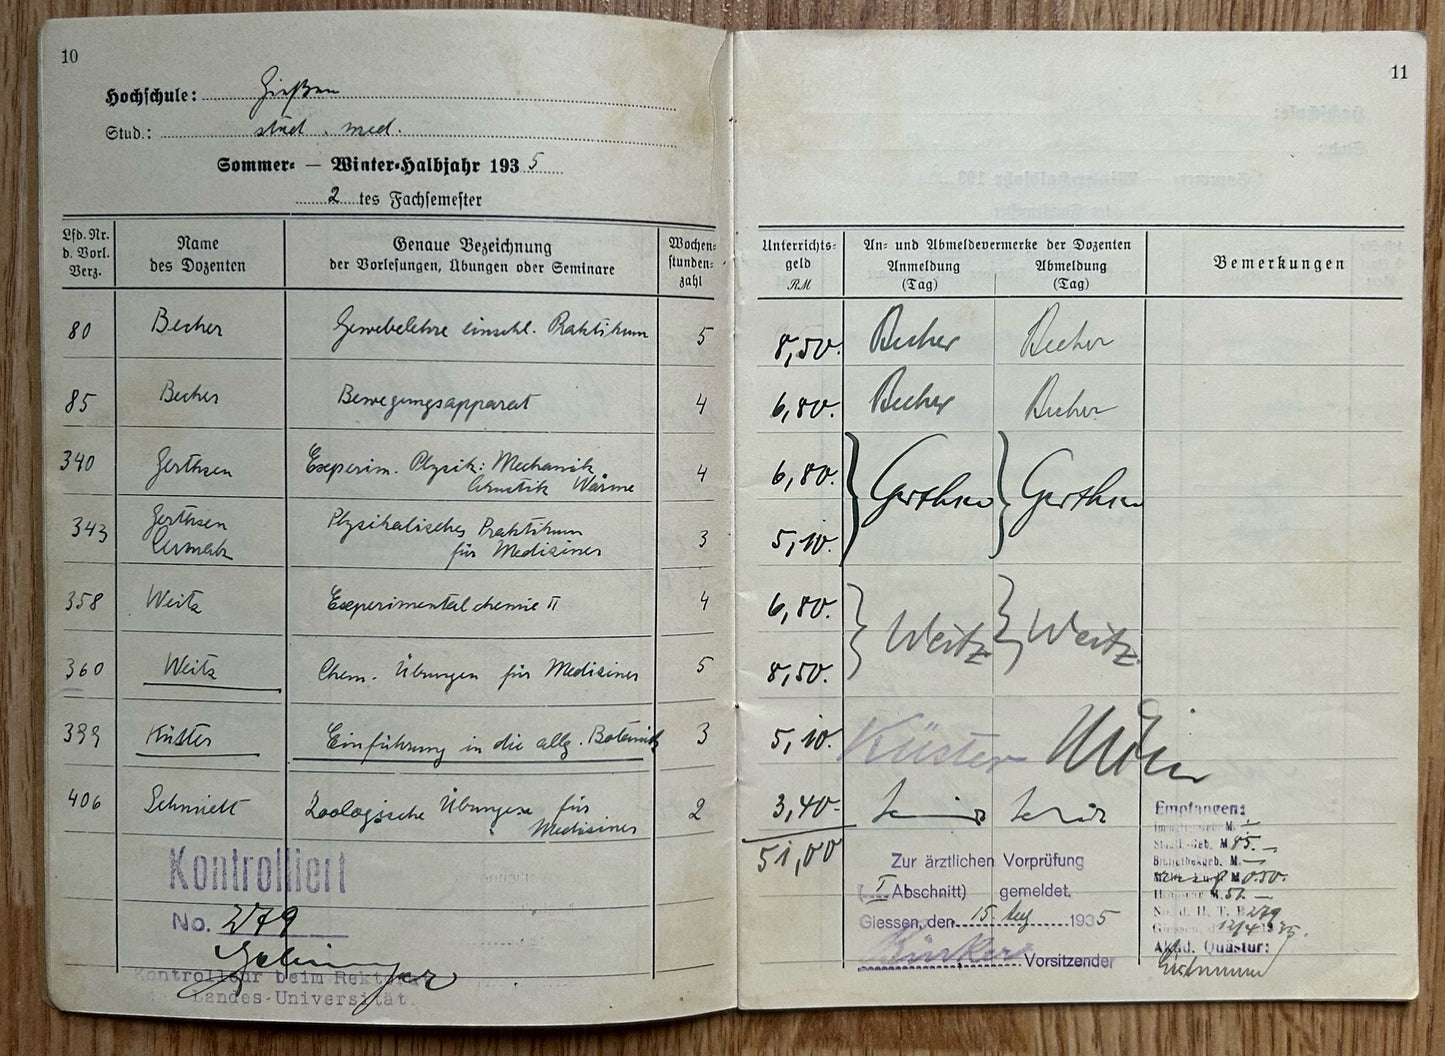 10
Hochschule: Gießen
Stud.: stud. med.
Sommer- — Winter-Halbjahr 1935
2 tes Fachsemester
Lfd. Nr. d. Vorl. Verz.
Name des Dozenten
Genaue Bezeichnung der Vorlesungen, Übungen oder Seminare
Wochen-stunden-zahl
80 Becher Gewebelehre einschl. Praktikum 5
85 Becher Bewegungsapparat 4
340 Gerthsen Experim. Physik: Mechanik, 4
Akustik Wärme
343 Gerthsen Physikalisches Praktikum 3
Cermak für Mediziner
358 Weitz Experimentalchemie II 4
360 Weitz Chem. Übungen für Mediziner 5
399 Küster Einführung in die allg. Botanik 3
406 Schmidt Zoologische Übungen für 2
Mediziner
Kontrolliert
No. 279
Kontrolleur beim Rektorat
Landes-Universität.
11
Unterrichts-geld RM
An- und Abmeldevermerke der Dozenten
Anmeldung (Tag)
Abmeldung (Tag)
Bemerkungen
8,50. Becher Becher
6,80. Becher Becher
6,80. Gerthsen Gerthsen
5,10.
6,80. Weitz Weitz
8,50.
5,10. Küster
3,40.
51,00
Zur ärztlichen Vorprüfung
(I Abschnitt) gemeldet.
Giessen, den 15. 1935
Vorsitzender
Empfangen:
Stud.-Geb. M. 85.—
Bibliothekgeb. M.—
M. 0.50.
Honorar M. 51.—
No. d. H. T. B 279
Giessen, d. 12/4 1935.
Akad. Quästur: